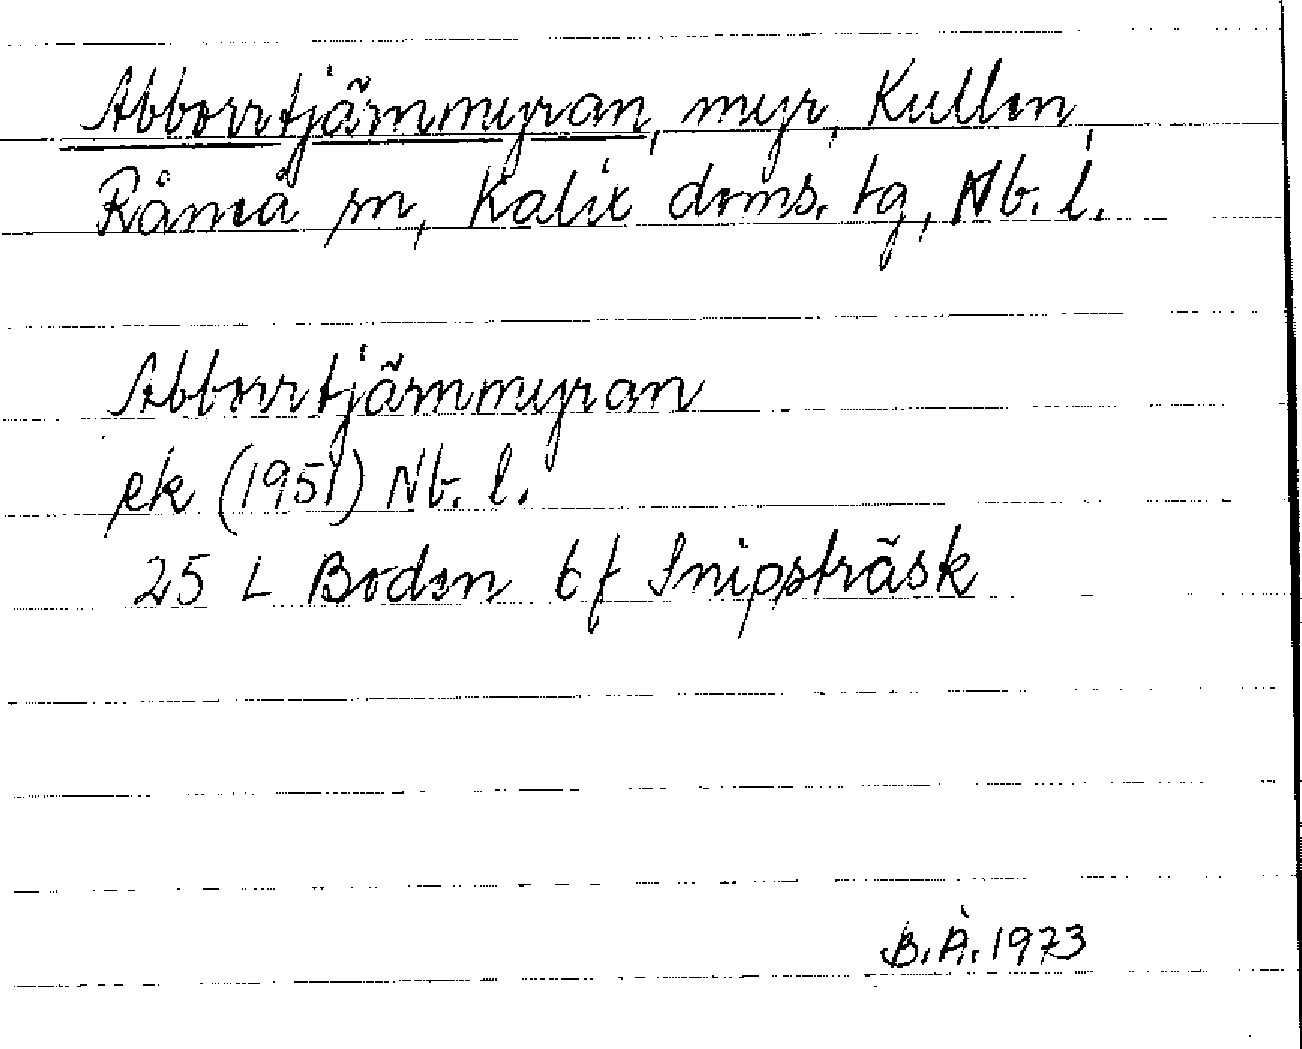 Abborrtjärnmyran, myr, Kullen,
Råneå sn, Kalix doms. tg, Nb. l.
Abborrtjärnmyran
ek (1951) Nb. l.
25 L Boden tf Snipsträsk
B.Å. 1973